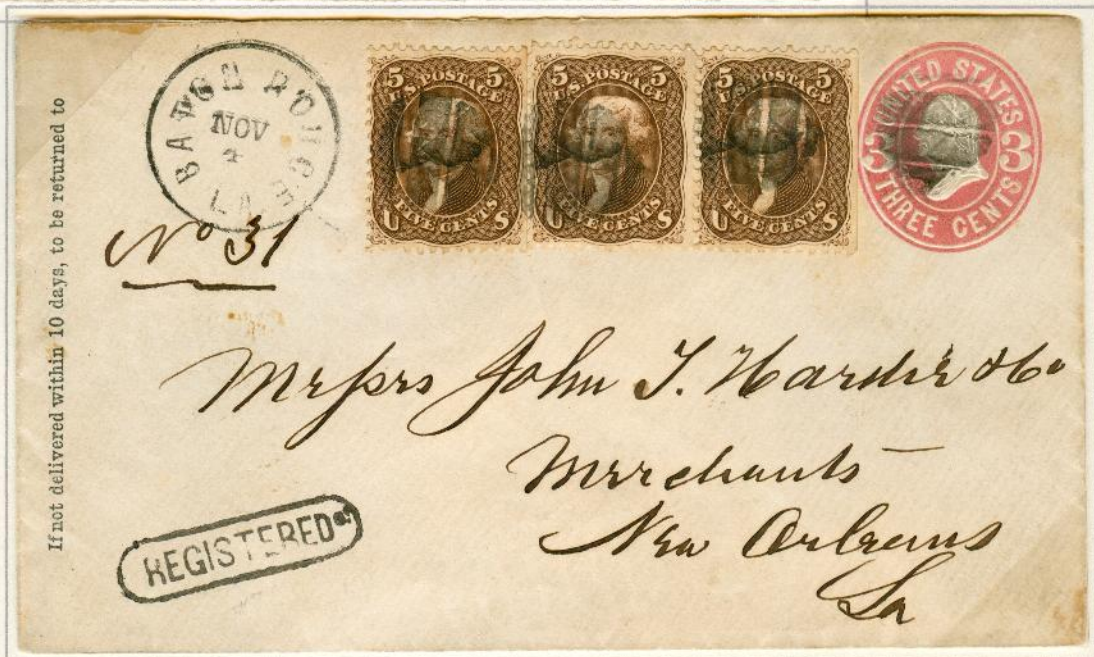 If not delivered within 10 days, to be returned to
BATON ROUGE
NOV
4
LA
No 31
5 POSTAGE 5
U.S.
U FIVE CENTS S
5 POSTAGE 5
U.S.
U FIVE CENTS S
5 POSTAGE 5
U.S.
U FIVE CENTS S
UNITED STATES
3 3
THREE CENTS
Messrs John T. Hardie & Co
Merchants
New Orleans
La
REGISTERED